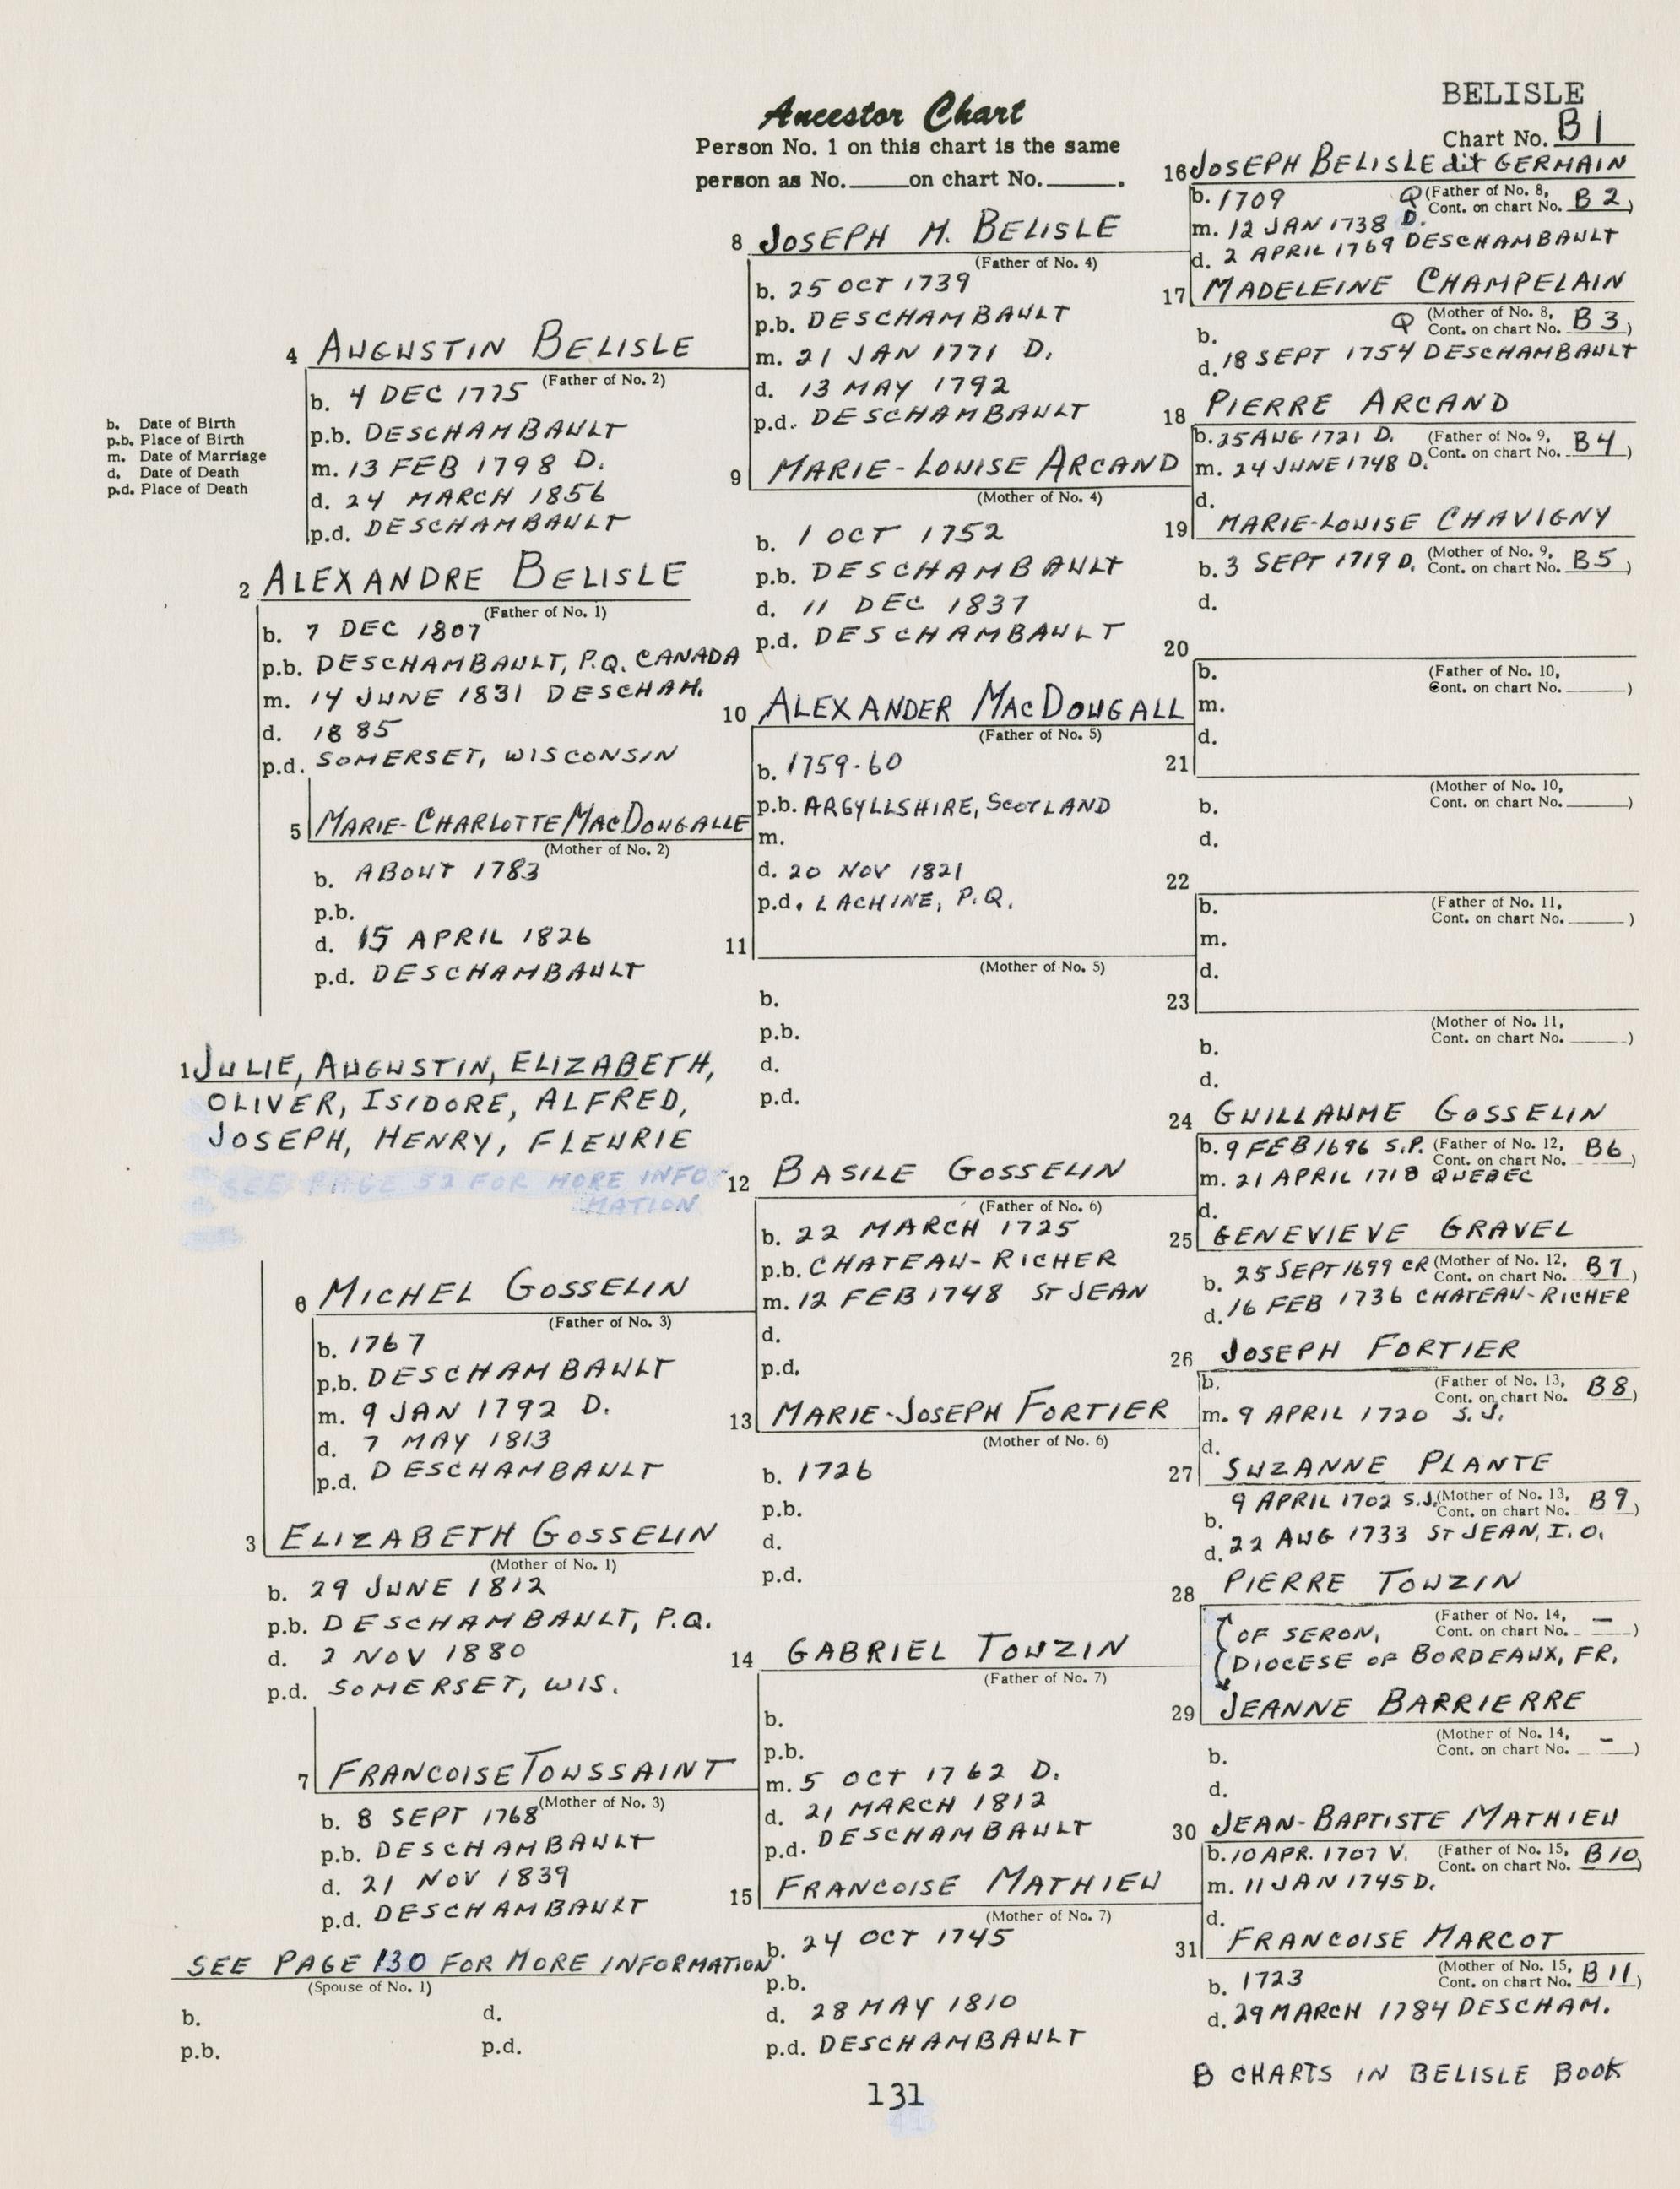 BELISLE
Ancestor Chart
Chart No. B1
Person No. 1 on this chart is the same
person as No. on chart No. .
b. Date of Birth
p.b. Place of Birth
m. Date of Marriage
d. Date of Death
p.d. Place of Death
4 AUGUSTIN BELISLE
(Father of No. 2)
b. 4 DEC 1775
p.b. DESCHAMBAULT
m. 13 FEB 1798 D.
d. 24 MARCH 1856
p.d. DESCHAMBAULT
2 ALEXANDRE BELISLE
(Father of No. 1)
b. 7 DEC 1807
p.b. DESCHAMBAULT, P.Q. CANADA
m. 14 JUNE 1831 DESCHAM.
d. 1885
p.d. SOMERSET, WISCONSIN
5 MARIE-CHARLOTTE MACDOUGALLE
(Mother of No. 2)
b. ABOUT 1783
p.b.
d. 15 APRIL 1826
p.d. DESCHAMBAULT
1 JULIE, AUGUSTIN, ELIZABETH,
OLIVER, ISIDORE, ALFRED,
JOSEPH, HENRY, FLEURIE
SEE PAGE 52 FOR MORE INFO
MATION
6 MICHEL GOSSELIN
(Father of No. 3)
b. 1767
p.b. DESCHAMBAULT
m. 9 JAN 1792 D.
d. 7 MAY 1813
p.d. DESCHAMBAULT
3 ELIZABETH GOSSELIN
(Mother of No. 1)
b. 29 JUNE 1812
p.b. DESCHAMBAULT, P.Q.
d. 2 NOV 1880
p.d. SOMERSET, WIS.
7 FRANCOISE TOUSSAINT
(Mother of No. 3)
b. 8 SEPT 1768
p.b. DESCHAMBAULT
d. 21 NOV 1839
p.d. DESCHAMBAULT
SEE PAGE 130 FOR MORE INFORMATION
(Spouse of No. 1)
b. d.
p.b. p.d.
8 JOSEPH M. BELISLE
(Father of No. 4)
b. 25 OCT 1739
p.b. DESCHAMBAULT
m. 21 JAN 1771 D.
d. 13 MAY 1792
p.d. DESCHAMBAULT
9 MARIE-LOUISE ARCAND
(Mother of No. 4)
b. 1 OCT 1752
p.b. DESCHAMBAULT
d. 11 DEC 1837
p.d. DESCHAMBAULT
10 ALEXANDER MACDOUGALL
(Father of No. 5)
b. 1759-60
p.b. ARGYLLSHIRE, SCOTLAND
m.
d. 20 NOV 1821
p.d. LACHINE, P.Q.
11
(Mother of No. 5)
b.
p.b.
d.
p.d.
12 BASILE GOSSELIN
(Father of No. 6)
b. 22 MARCH 1725
p.b. CHATEAU-RICHER
m. 12 FEB 1748 ST JEAN
d.
p.d.
13 MARIE-JOSEPH FORTIER
(Mother of No. 6)
b. 1726
p.b.
d.
p.d.
14 GABRIEL TOUZIN
(Father of No. 7)
b.
p.b.
m. 5 OCT 1762 D.
d. 21 MARCH 1812
p.d. DESCHAMBAULT
15 FRANCOISE MATHIEU
(Mother of No. 7)
b. 24 OCT 1745
p.b.
d. 28 MAY 1810
p.d. DESCHAMBAULT
16 JOSEPH BELISLE dit GERMAIN
b. 1709 Q (Father of No. 8,
Cont. on chart No. B2)
m. 12 JAN 1738 D.
d. 2 APRIL 1769 DESCHAMBAULT
17 MADELEINE CHAMPELAIN
b. Q (Mother of No. 8,
Cont. on chart No. B3)
d. 18 SEPT 1754 DESCHAMBAULT
18 PIERRE ARCAND
b. 25 AUG 1721 D. (Father of No. 9,
Cont. on chart No. B4)
m. 24 JUNE 1748 D.
d.
19 MARIE-LOUISE CHAVIGNY
b. 3 SEPT 1719 D. (Mother of No. 9,
Cont. on chart No. B5)
d.
20
b. (Father of No. 10,
Cont. on chart No. )
m.
d.
21
(Mother of No. 10,
b. Cont. on chart No. )
d.
22
b. (Father of No. 11,
Cont. on chart No. )
m.
d.
23
(Mother of No. 11,
Cont. on chart No. )
b.
d.
24 GUILLAUME GOSSELIN
b. 9 FEB 1696 S.P. (Father of No. 12,
Cont. on chart No. B6)
m. 21 APRIL 1718 QUEBEC
d.
25 GENEVIEVE GRAVEL
b. 25 SEPT 1699 CR (Mother of No. 12,
Cont. on chart No. B7)
d. 16 FEB 1736 CHATEAU-RICHER
26 JOSEPH FORTIER
b. (Father of No. 13,
Cont. on chart No. B8)
m. 9 APRIL 1720 S.J.
d.
27 SUZANNE PLANTE
b. 9 APRIL 1702 S.J. (Mother of No. 13,
Cont. on chart No. B9)
d. 22 AUG 1733 ST JEAN, I.O.
28 PIERRE TOUZIN
(Father of No. 14,
Cont. on chart No. —)
OF SERON,
DIOCESE OF BORDEAUX, FR.
29 JEANNE BARRIERRE
(Mother of No. 14,
Cont. on chart No. —)
b.
d.
30 JEAN-BAPTISTE MATHIEU
b. 10 APR. 1707 V. (Father of No. 15,
Cont. on chart No. B10)
m. 11 JAN 1745 D.
d.
31 FRANCOISE MARCOT
b. 1723 (Mother of No. 15,
Cont. on chart No. B11)
d. 29 MARCH 1784 DESCHAM.
B CHARTS IN BELISLE BOOK
131